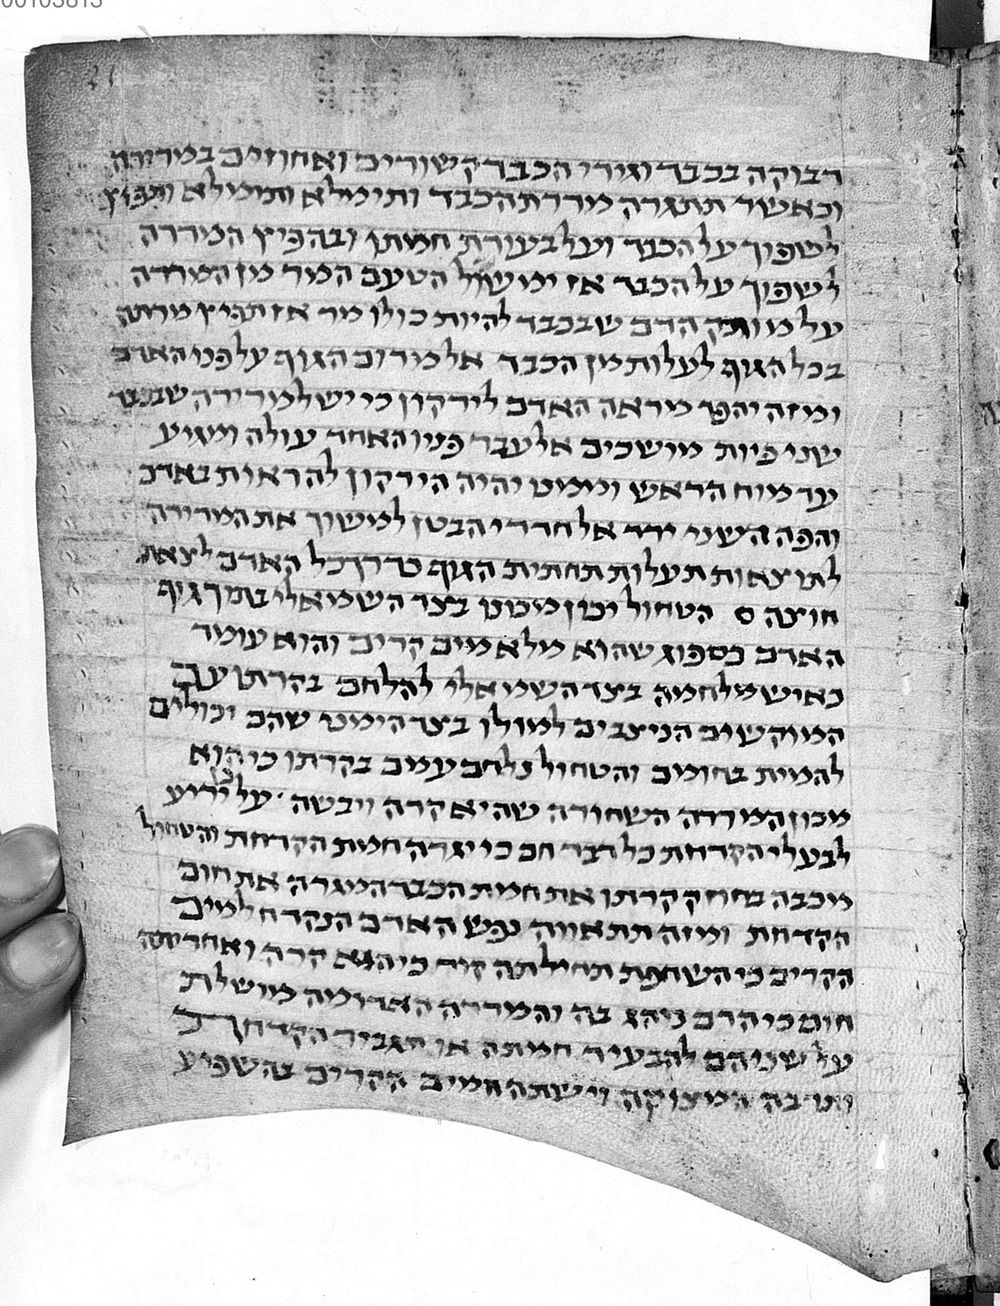 00103813
דבוקה בכבד וגידי הכבד קשורים ואחוזים במרורה
וכאשר תתגרה מררת הכבד ותימלא ותמלא ותפוץ
לשפוך על הכבד ועל בעורת חמתן ובהפיץ המררה
לשפוך על הכבד אז ימשול הטעם המר מן המררה
על מוזק הדם שבכבד להיות כולו מר אז תפיץ מרתה
בכל הגוף לעלות מן הכבד אל מרום הגוף על פני האדם
ומזה יהפך מראה האדם לירקון כי יש למרירה שבכבד
שני פיות מושכים אל עבר פניו האחד עולה ומגיע
עד מוח הראש וממנו יהיה הירקון להראות באדם
והפה השני ירד אל חדרי הבטן למשוך את המרירה
לתוצאות תעלות תחתית הגוף כדרך כל האדם לצאת
חוצה ס הטחול יכון מימנו בצד השמאלי בתוך גוף
האדם כספוג שהוא מלא מים קרים והוא עומד
כאיש מלחמה בצד השמאלי להלחם בקרתו עם
המוקשים הניצבים למולו בצד הימני שהם יכולים
להמית בחומם והטחול נלחם עמם בקרתו כי הוא
מכון המררה השחורה שהיא קרה ויבשה · על כן יריע
לבעלי הקדחת כל דבר חם כי יגרה חמת הקדחת והטחול
מכבה בחוזק קרתו את חמת הכבד המגרה את חום
הקדחת ומזה תתאווה נפש האדם הנקדח למים
הקרים כי השחפת תחילתה קור כי הוא קרה ואחריתה
חום כי הדם נוהג בה והמררה האדומה מושלת
על שניהם להבעיר חמתה או תגביר הקדחת
המצוקה וישתה המים הקרים בהשפיע